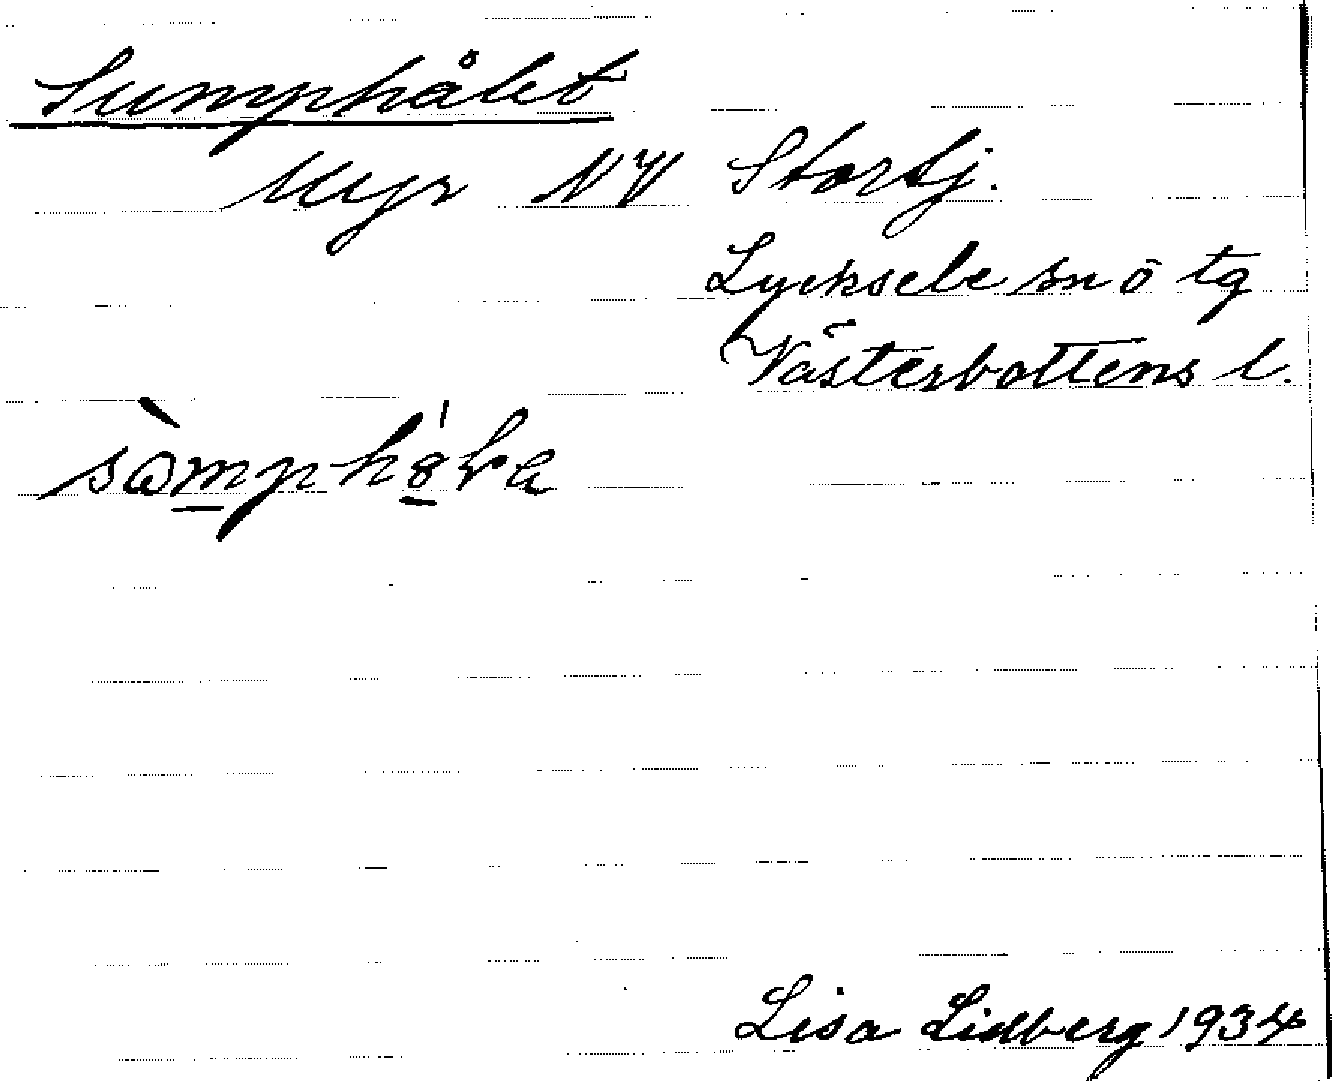 Sumphålet
Myr NV Stortj.
Lycksele sn o tg
Västerbottens l.
Lisa Lidberg 1934